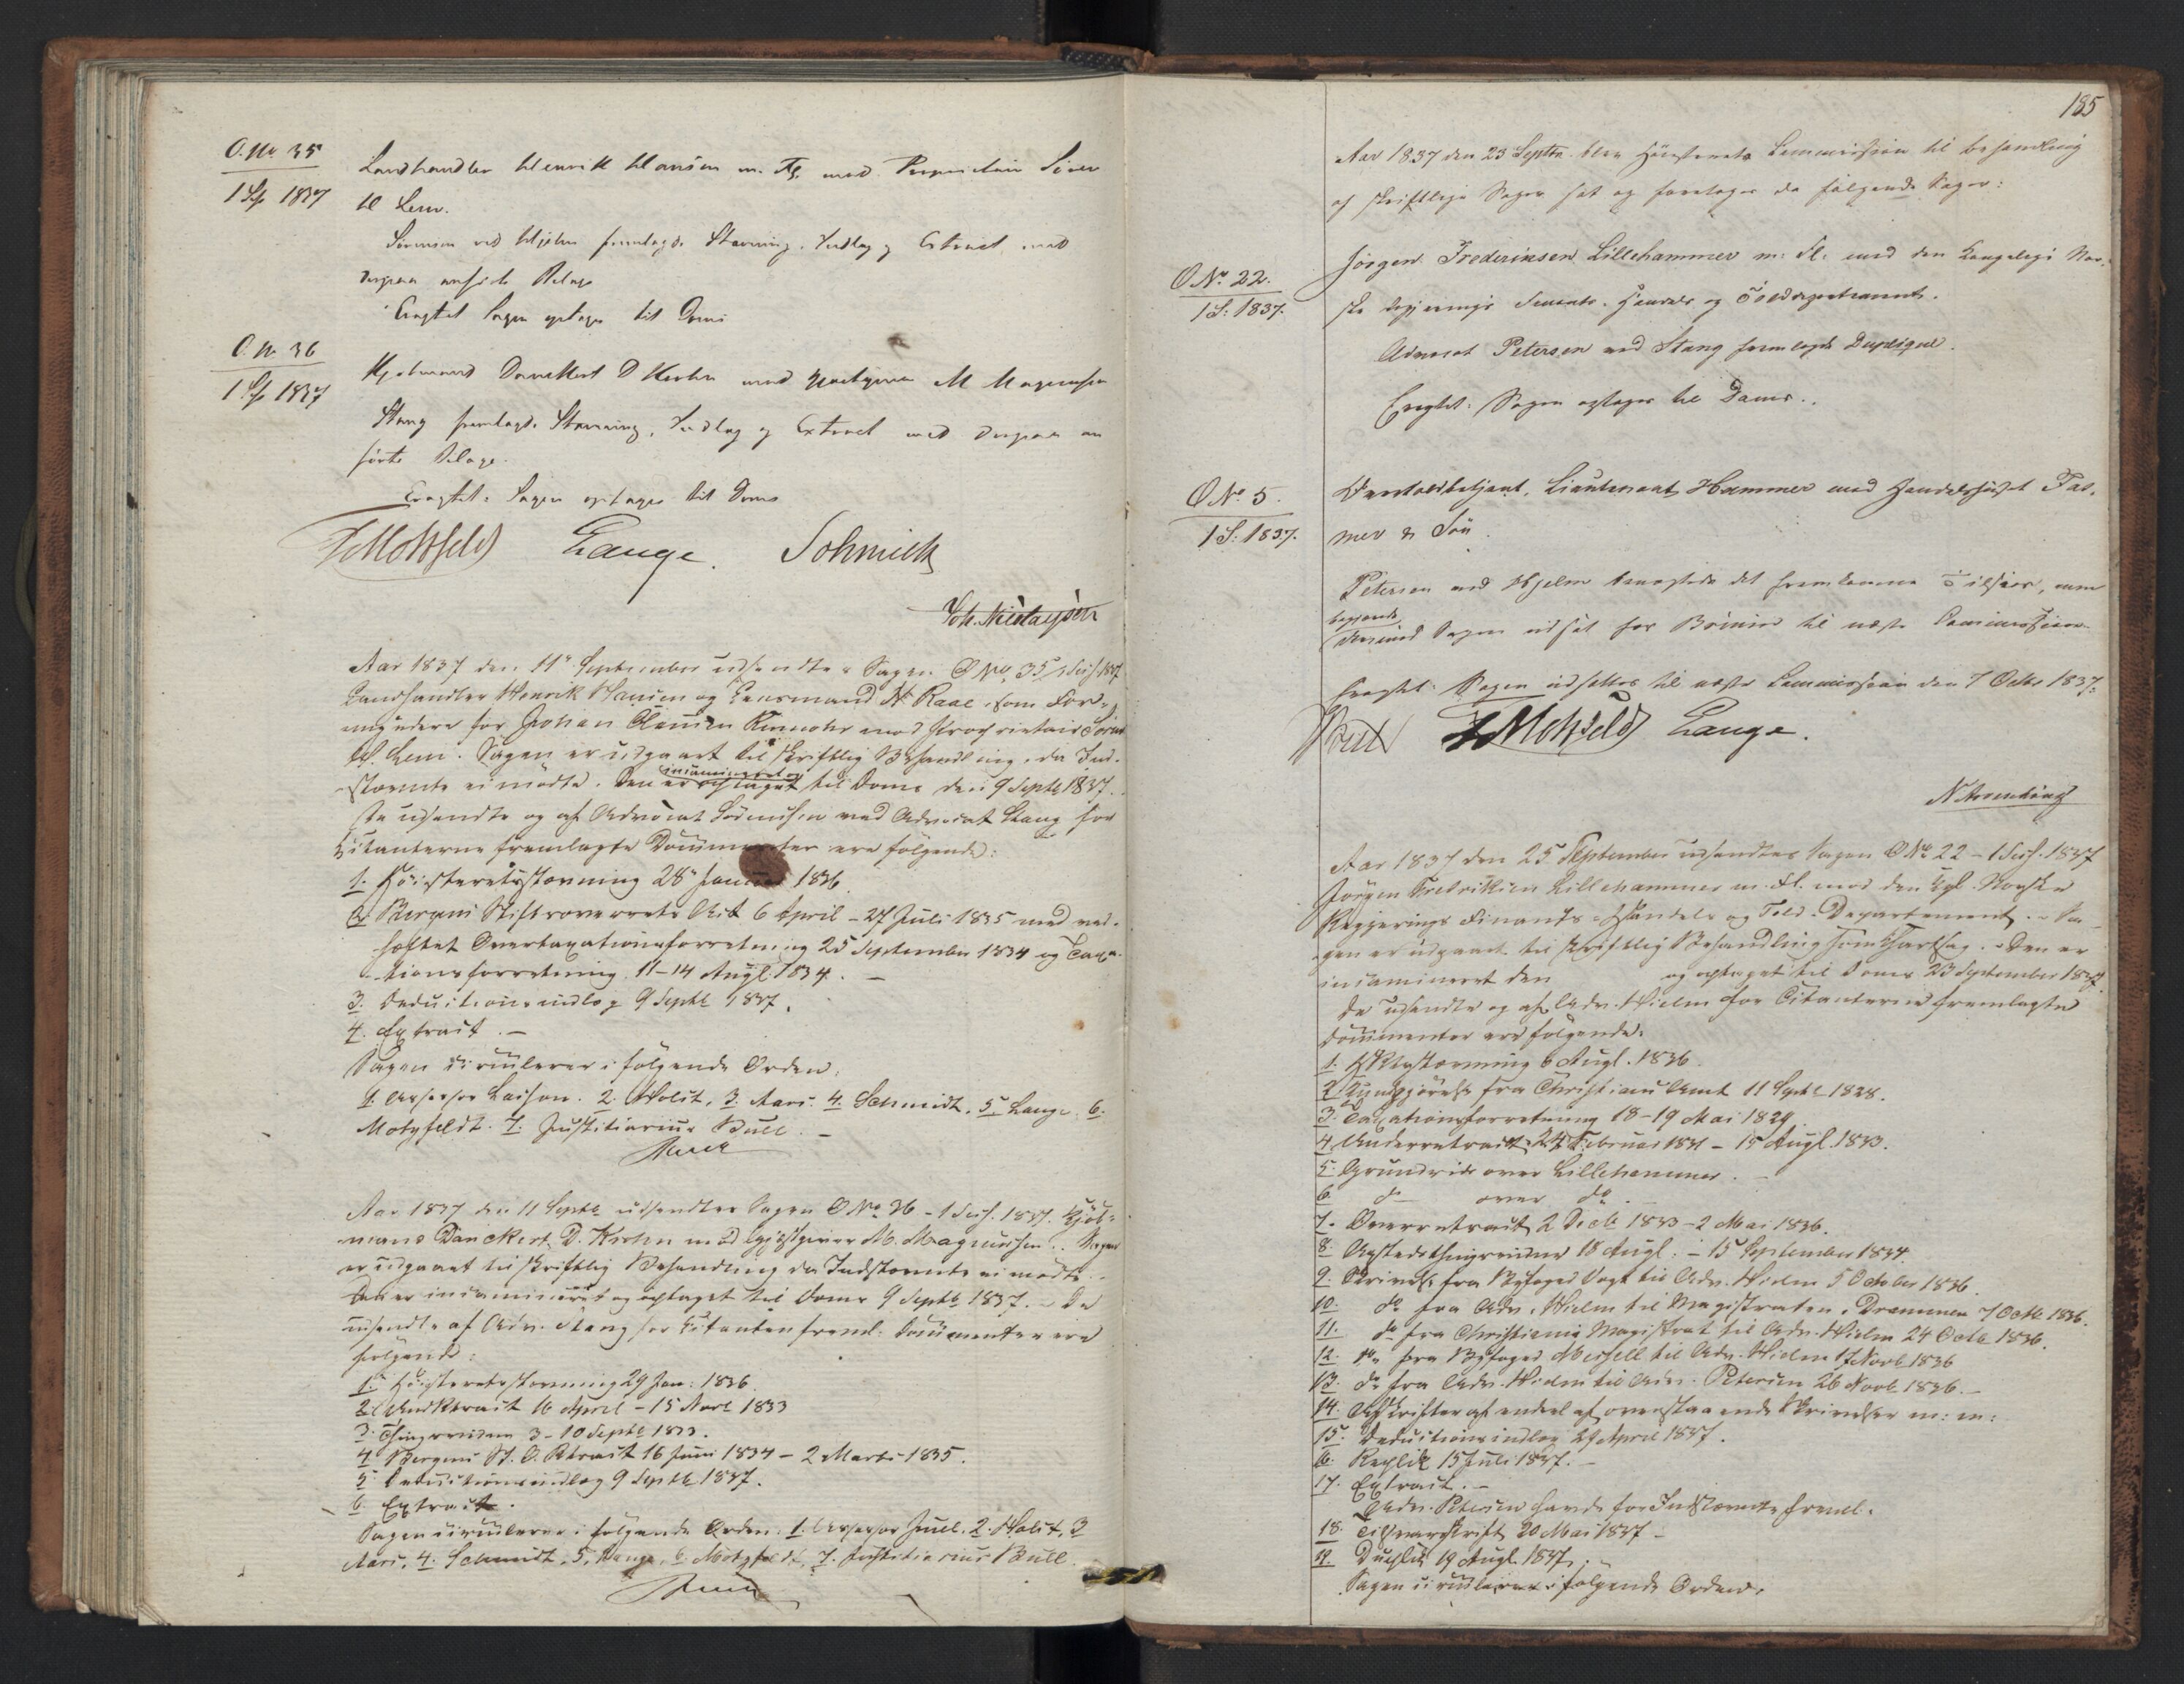 O. No. 35
1 S. 1837
Landhandler Henrik Hansen m. Fl. mod Proprietair Sören
til Lem.
Sörensen ved Hjelm fremlagde Stævning, Indlæg og Extract med
derpaa anførte Bilage
Eragtet Sagen optages til Doms
O. No. 36
1 S. 1837
Kjøbmand Danckert D Krohn mod Gjæstgiver M Magnussen
Stang fremlagde Stævning, Indlæg og Extract med derpaa an
førte Bilage.
Eragtet: Sagen optages til Doms
Motzfeldt Lange. Schmidt
Joh. Nicolaysen
Aar 1837 den 11te September udsendtes Sagen O No. 35 1 Sess. 1837
Landhandler Henrik Hansen og Lensmand N. Raae, som For-
myndere for Johan Clemen mod Proprietair Sören
til Lem. Sagen er udgaaet til skriftlig Behandling, da Ind-
stævnte ei mødte. Den er incamineret og optaget til Doms den 9 Septb. 1837.
De udsendte og af Advocat Sörensen ved Advocat Stang for
Citanterne fremlagte Documenter ere følgende:
1. Høiesteretsstævning 28 Januar 1836
2. Bergens Stiftsoverrets Act 6 April – 27 Juli 1835 med ved-
hæftet Overtaxationsforretning 25 September 1834 og Taxa-
tionsforretning 11-14 Augt. 1834. –
3. Deductionsindlæg 9 Septb. 1837.
4. Extract. –
Sagen circulerer i følgende Orden:
1. Assessor Lasson. 2. Holst, 3. Aars. 4. Schmidt. 5. Lange. 6.
Motzfeldt. 7. Justitiarius Bull. –
Aar 1837 den 11 Septb. udsendtes Sagen O No. 36 – 1 Sess. 1837. Kjøb-
mand Danckert D. Krohn mod Gjæstgiver M. Magnussen. Sagen
er udgaaet til skriftlig Behandling da Indstævnte ei mødte.
Den er incamineret og optaget til Doms 9 Septb. 1837. – De
udsendte af Adv. Stang for Citanten freml. Documenter ere
følgende:
1. Høiesteretsstævning 29 Jan: 1836
2. 16 April – 15 Novb. 1833
3. Thingsvidne 3-10 Septb. 1833.
4. Bergens St. O. Rtsact 16 Juni 1834 – 2 Marts 1835.
5. Deductionsindlæg 9 Septb. 1837.
6. Extract.
Sagen circulerer i følgende Orden: 1. Assessor Juel. 2. Holst, 3
Aars, 4. Schmidt, 5. Lange, 6. Motzfeldt, 7. Justitiarius Bull.
185
Aar 1837 den 23 Septbr. blev Høiesterets Commission til Behandling
af skriftlige Sager sat og foretoges da følgende Sager:
O No. 22.
1 S: 1837.
Jörgen Frederiksen Lillehammer m: Fl: mod den Kongelige Nor-
ske Regjerings Finants-, Handels og Tolddepartement.
Advocat Petersen ved Stang fremlagde Duplique.
Eragtet: Sagen optages til Doms.
O No. 5.
1 S: 1837.
Overtoldbetjent, Lieutenant Hammer mod Handelshuset Fas-
mer & Sön.
Petersen ved Hjelm benegtede det fremkomne Tilsvar, som
begjærede
Sagen udsat for Beviser til næste Commission
Eragtet: Sagen udsættes til næste Commission den 7 Octbr 1837.
Bull Motzfeldt Lange.
N Arentsen
Aar 1837 den 25 September udsendtes Sagen O No. 22 – 1 Sess. 1837
Jørgen Fredriksen Lillehammer m. Fl. mod den Kgl. Norske
Regjerings Finants-, Handels og Told-Departement. – Sa-
gen er udgaaet til skriftlig Behandling som Hartsag. – Den er
incamineret den og optaget til Doms 23 September 1837.
De udsendte og af Adv. Hielm for Citanterne fremlagte
Documenter ere følgende:
1. HRtsstævning 6 Augt. 1836.
2. Kundgjørelse fra Christians Amt 11 Septb. 1828.
3. Taxationsforretning 18-19 Mai 1829
4. Underretsact 24 Februar 1831 – 15 Augt. 1833.
5. Grundrids over Lillehammer. –
6. do over do. –
7. Overretsact 2 Decb. 1833 – 2 Mai 1836.
8. Aastedsthingsvidne 18 Augt. – 15 September 1834.
9. Skrivelse fra Byfoged Vogt til Adv. Hielm 5 October 1836.
10. do fra Adv. Hielm til Magistraten i Drammen 7 Octb. 1836.
11. do fra Christiania Magistrat til Adv. Hielm 24 Octb. 1836.
12. do fra Byfoged til Adv. Hielm 17 Novb. 1836
13. do fra Adv. Hielm til Adv. Petersen 26 Novb. 1836. –
14. Afskrifter af endeel af ovenstaaende Skrivelser m: m:
15. Deductionsindlæg 29 April 1837.
16. Replik 15 Juli 1837. –
17. Extract. –
Adv. Petersen havde for Indstævnte freml.
18. Tilsvarsskrift 20 Mai 1837 –
19. Duplik 19 Augt. 1837. –
Sagen circulerer i følgende Orden: